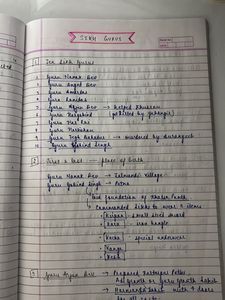 SIKH GURUS
1 Ten Sikh Gurus
1. Guru Nanak Dev
2. Guru Angad Dev
3. Guru Amardas
4. Guru Ramdas
5. Guru Arjun Dev → helped Khusrau
6. Guru Hargobind (killed by Jahangir)
7. Guru Har Rai
8. Guru Harkishan
9. Guru Tegh Bahadur → murdered by Aurangzeb
10. Guru Gobind Singh
2 First & last place of birth
Guru Nanak Dev → Talwandi Village
Guru Gobind Singh → Patna
laid foundation of Khalsa Panth
Commanded Sikhs to wear 5 items
Kirpan - small sized sword
Kara - iron bangle
Kacha - special underwear
Kanga
Kesh
3 Guru Arjun Dev → Prepared
Adi granth or Guru Granth Sahib
Harmandir Sahib with 4 doors
for all castes